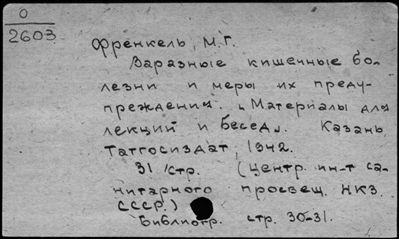 0
2603
Френкель, М.Г.
Заразные кишечные бо-
лезни и меры их преду-
преждения. „Материалы для
лекций и бесед„. Казань,
Татгосиздат, 1942.
31 стр. (Центр. ин-т са-
нитарного просвещ. НКЗ
СССР.)
Библиогр. стр. 30-31.